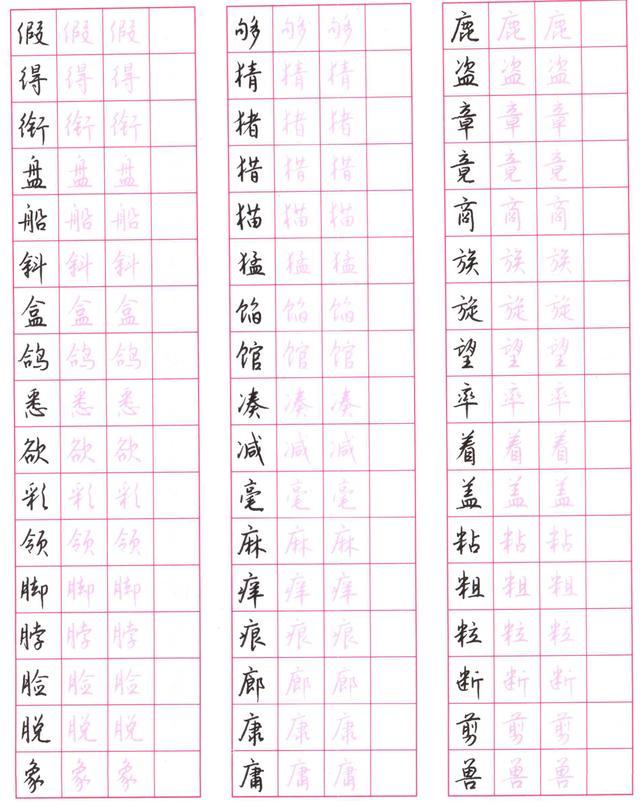 假 假 假
得 得 得
衔 衔 衔
盘 盘 盘
船 船 船
斜 斜 斜
盒 盒 盒
鸽 鸽 鸽
悉 悉 悉
欲 欲 欲
彩 彩 彩
领 领 领
脚 脚 脚
脖 脖 脖
脸 脸 脸
脱 脱 脱
象 象 象
够 够 够
猜 猜 猜
猪 猪 猪
猎 猎 猎
猫 猫 猫
猛 猛 猛
馅 馅 馅
馆 馆 馆
凑 凑 凑
减 减 减
毫 毫 毫
麻 麻 麻
痒 痒 痒
痕 痕 痕
廊 廊 廊
康 康 康
庸 庸 庸
鹿 鹿 鹿
盗 盗 盗
章 章 章
竟 竟 竟
商 商 商
族 族 族
旋 旋 旋
望 望 望
率 率 率
着 着 着
盖 盖 盖
粘 粘 粘
粗 粗 粗
粒 粒 粒
断 断 断
剪 剪 剪
兽 兽 兽